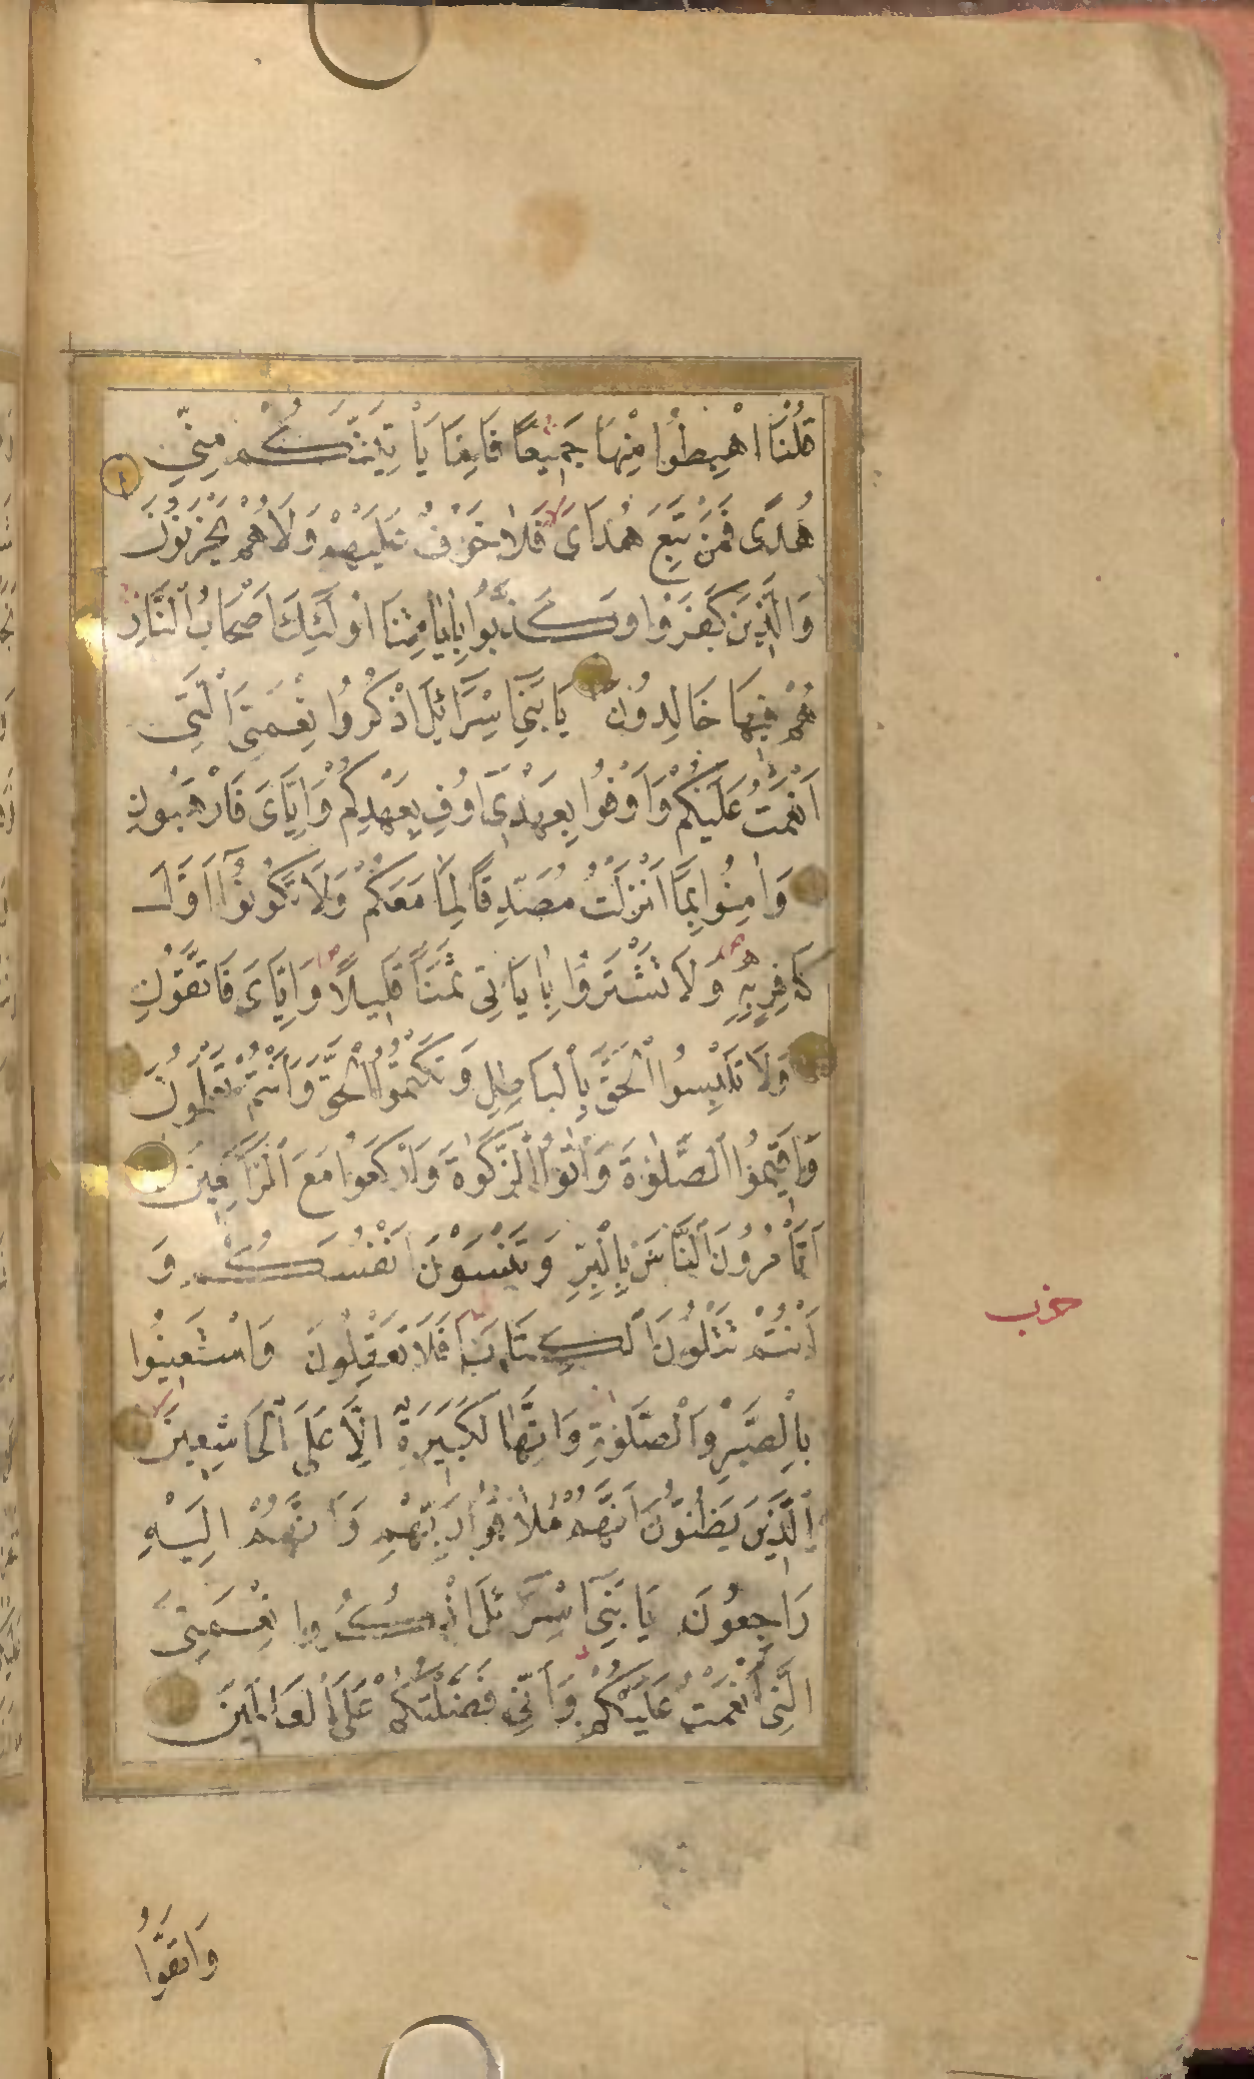 قُلْنَا اهْبِطُوا مِنْهَا جَمِيعًا فَاِمَّا يَاْتِيَنَّكُمْ مِنِّي
هُدًى فَمَنْ تَبِعَ هُدَاىَ فَلَا خَوْفٌ عَلَيْهِمْ وَلَا هُمْ يَحْزَنُونَ
وَالَّذِينَ كَفَرُوا وَكَذَّبُوا بِاٰيَاتِنَا اُولٰٓئِكَ اَصْحَابُ النَّارِ
هُمْ فِيهَا خَالِدُونَ يَا بَنِٓي اِسْرَٓائِلَ اذْكُرُوا نِعْمَتِيَ الَّتِي
اَنْعَمْتُ عَلَيْكُمْ وَاَوْفُوا بِعَهْدِٓي اُوفِ بِعَهْدِكُمْ وَاِيَّاىَ فَارْهَبُونِ
وَاٰمِنُوا بِمَٓا اَنْزَلْتُ مُصَدِّقًا لِمَا مَعَكُمْ وَلَا تَكُونُٓوا اَوَّلَ
كَافِرٍ بِهِ وَلَا تَشْتَرُوا بِاٰيَاتِي ثَمَنًا قَلِيلًا وَاِيَّاىَ فَاتَّقُونِ
وَلَا تَلْبِسُوا الْحَقَّ بِالْبَاطِلِ وَتَكْتُمُوا الْحَقَّ وَاَنْتُمْ تَعْلَمُونَ
وَاَقِيمُوا الصَّلٰوةَ وَاٰتُوا الزَّكٰوةَ وَارْكَعُوا مَعَ الرَّاكِعِينَ
اَتَاْمُرُونَ النَّاسَ بِالْبِرِّ وَتَنْسَوْنَ اَنْفُسَكُمْ وَ
اَنْتُمْ تَتْلُونَ الْكِتَابَ اَفَلَا تَعْقِلُونَ وَاسْتَعِينُوا
بِالصَّبْرِ وَالصَّلٰوةِ وَاِنَّهَا لَكَبِيرَةٌ اِلَّا عَلَى الْخَاشِعِينَ
اَلَّذِينَ يَظُنُّونَ اَنَّهُمْ مُلَاقُوا رَبِّهِمْ وَاَنَّهُمْ اِلَيْهِ
رَاجِعُونَ يَا بَنِٓي اِسْرَٓئِلَ اذْكُرُوا نِعْمَتِيَ
الَّتِٓي اَنْعَمْتُ عَلَيْكُمْ وَاَنِّي فَضَّلْتُكُمْ عَلَى الْعَالَمِينَ
حزب
وَاتَّقُوا